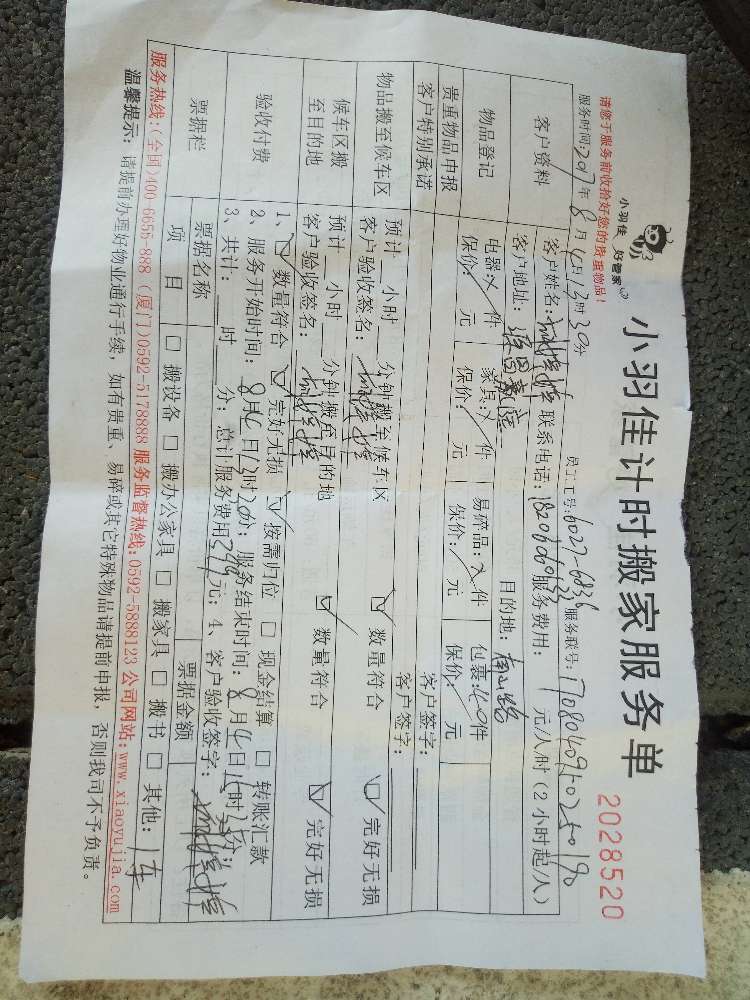 小羽佳 好管家
小羽佳计时搬家服务单
2028520
请您于服务前收拾好您的贵重物品!
服务时间:2017年8月4日13时30分 员工工号:6027-6236 服务联号:
客户资料
客户姓名: 联系电话: 服务费用:/元/人/时(2小时起/人)
客户地址: 目的地:
物品登记
电器:/件 家具:/件 易碎品:/件 包裹:40件
保价:/元 保价:/元 保价:/元 保价: 元
贵重物品申报 客户签字:
客户特别承诺 客户签字:
物品搬至候车区
预计 小时 分钟搬至候车区
客户验收签名: ☑ 数量符合 ☑ 完好无损
候车区搬至目的地
预计 小时 分钟搬至目的地
客户验收签名: ☑ 数量符合 ☑ 完好无损
验收付费
1、☑ 数量符合 ☑ 完好无损 ☑ 按需归位 □ 现金结算 □ 转账汇款
2、服务开始时间:8月4日13时20分;服务结束时间:8月4日15时 分;
3、共计: 时 分;总计服务费用 元;4、客户验收签字:
票据栏 票据名称 票据金额
项目 □ 搬设备 □ 搬办公家具 □ 搬家具 □ 搬书 □ 其他:1车
服务热线:(全国)400-6655-888 (厦门)0592-5178888 服务监督热线:0592-5888123 公司网站:www.xiaoyujia.com
温馨提示:请提前办理好物业通行手续,如有贵重、易碎或其它特殊物品请提前申报,否则我司不予负责。